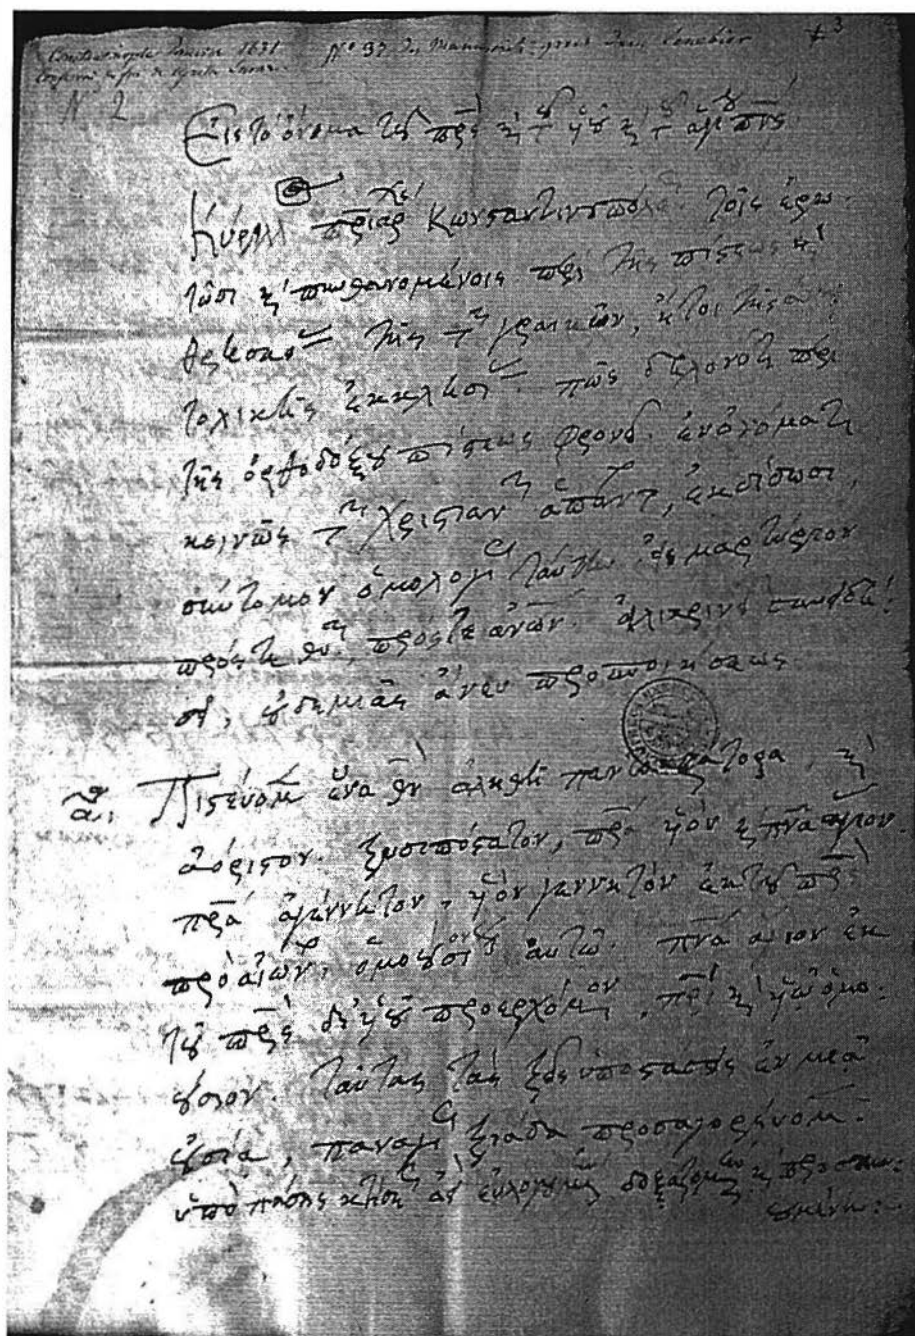 Constantinople Janvier 1631 N° 37 des Manuscrits
N 2
Εἰς τὸ ὄνομα τοῦ πρς κ τοῦ υἱοῦ κ τοῦ ἁγίου πνς
Κύριλλ πριάρχ Κωνσταντινουπόλ τοῖς ἐρω
τῶσι κ πυνθανομένοις περὶ τῆς πίστεως κ
θρησκ τῆς τῶν γραικῶν, ἤτοι τῆς ἀνα
τολικῆς ἐκκλησί πῶς δηλονότι περὶ
τῆς ὀρθοδόξου πίστεως φρονοῦ ἐν ὀνόματι
κοινῶς τῶν χριστιανῶν ἁπάντων, ἐκδίδωσι
σύντομον ὁμολογί ταύτην εἰς μαρτύριον
πρός τε θν, πρός τε ἀνων εἰλικρινεῖ συνειδή
σει, οὐδεμιᾶς ἄνευ προσποιήσεως
α. Πιστεύομ ἕνα θν ἀληθῆ παντοκράτορα, κ
ἀόριστον τρισυπόστατον, πρα υἱόν κ πνα ἅγιον
πρα ἀγέννητον, υἱόν γεννητόν ἐκ τοῦ πρς
πρὸ αἰώνων, ὁμοούσιον αὐτῷ πνα ἅγιον ἐκ
τοῦ πρς δι υἱοῦ προερχόμενον, πρὶ κ υἱῷ ὁμο
ούσιον. ταύτας τὰς τρεῖς ὑποστάσεις ἐν μιᾷ
οὐσίᾳ, παναγί τριάδα προσαγορεύομ
ὑπὸ πάσης κτίσ ἀεὶ εὐλογουμένην δοξαζομένην κ προσκυ
ουμένην